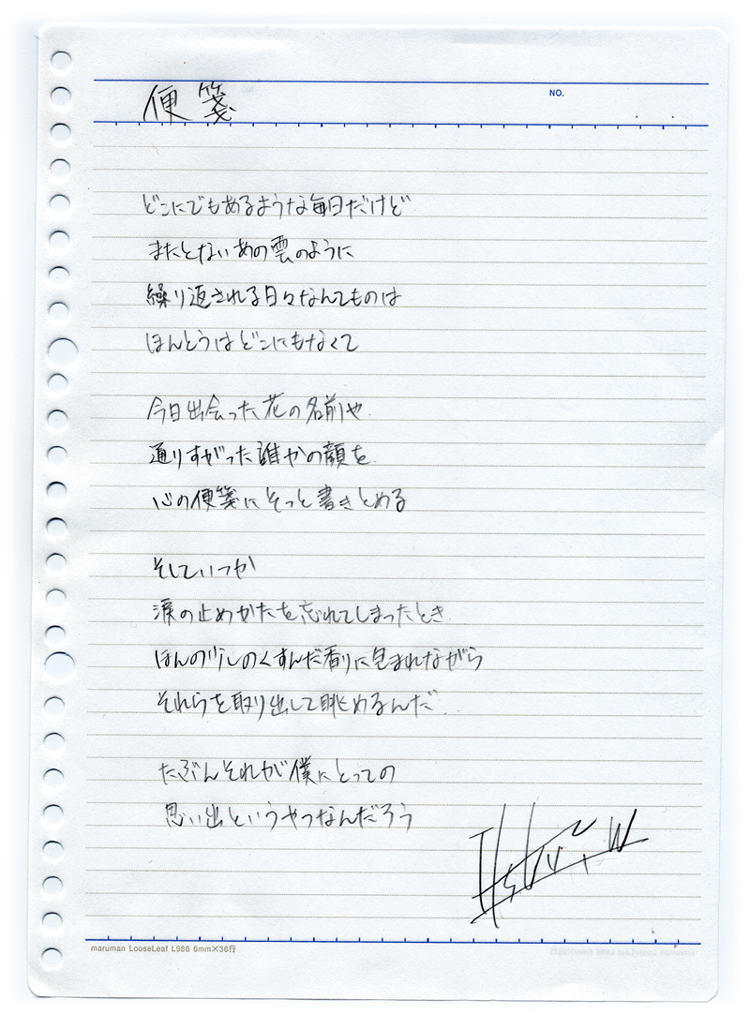 NO.
便箋
どこにでもあるような毎日だけど
またとないあの雲のように
繰り返される日々なんてものは
ほんとうはどこにもなくて
今日出会った花の名前や
通りすがった誰かの顔を
心の便箋にそっと書きとめる
そしていつか
涙の止めかたを忘れてしまったとき
ほんの少しのくすんだ香りに包まれながら
それらを取り出して眺めるんだ
たぶんそれが僕にとっての
思い出というやつなんだろう
maruman LooseLeaf L986 6mm×36行